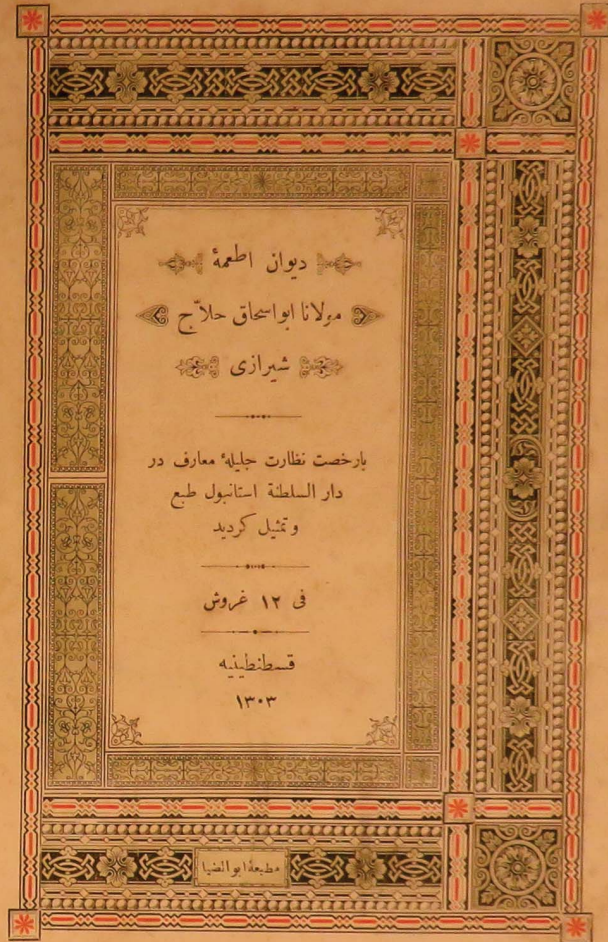 دیوان اطعمهٔ
مولانا ابواسحاق حلاّج
شیرازی
بارخصت نظارت جلیلهٔ معارف در
دار السلطنة استانبول طبع
و تمثیل کردید
فی ١٢ غروش
قسطنطینیه
١٣٠٣
مطبعهٔ ابوالضیا